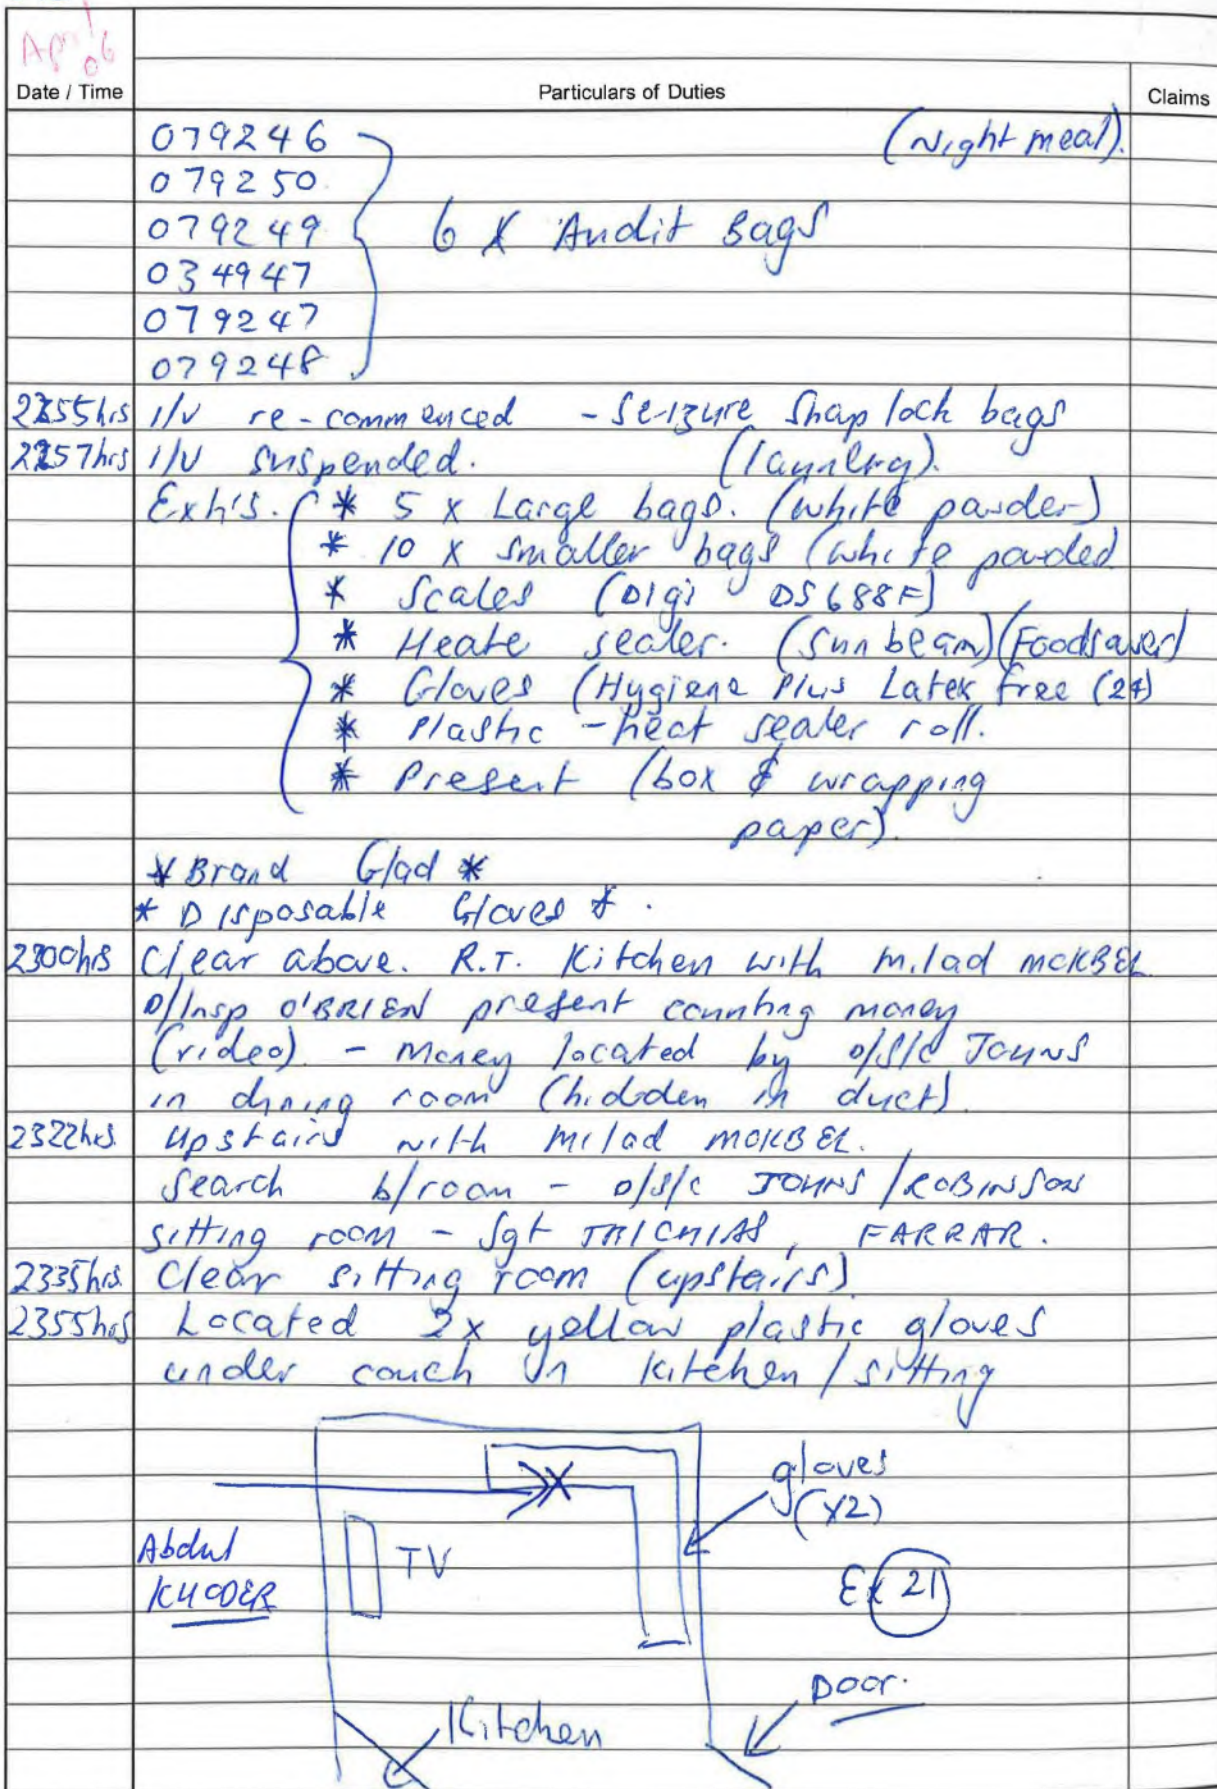 April
06
Date / Time Particulars of Duties Claims
079246 (Night meal).
079250
079249 6 X Audit Bags
034947
079247
079248
2255hrs I/V re-commenced - Seizure Snap lock bags
2257hrs I/V suspended. (laundry).
Exh's. * 5 x Large bags. (white powder)
* 10 x smaller bags (white powder)
* Scales (Digi DS688F)
* Heate sealer. (Sunbeam) (Foodsaver)
* Gloves (Hygiene Plus Latex free (24)
* Plastic - heat sealer roll.
* Present (box & wrapping
paper).
* Brand Glad *
* Disposable Gloves * .
2300hrs Clear above. R.T. Kitchen with Milad MOKBEL
D/Insp O'BRIEN present counting money
(video) - Money located by D/S/C JOHNS
in dining room (hidden in duct)
2322hrs. Upstairs with Milad MOKBEL.
Search b/room - D/S/C JOHNS / ROBINSON
sitting room - Sgt TRICHIAS, FARRAR.
2335hrs. Clear sitting room (upstairs)
2355hrs Located 2x yellow plastic gloves
under couch in kitchen / sitting
gloves
(x2)
Abdul TV
KHODER Ex 21
Door.
Kitchen